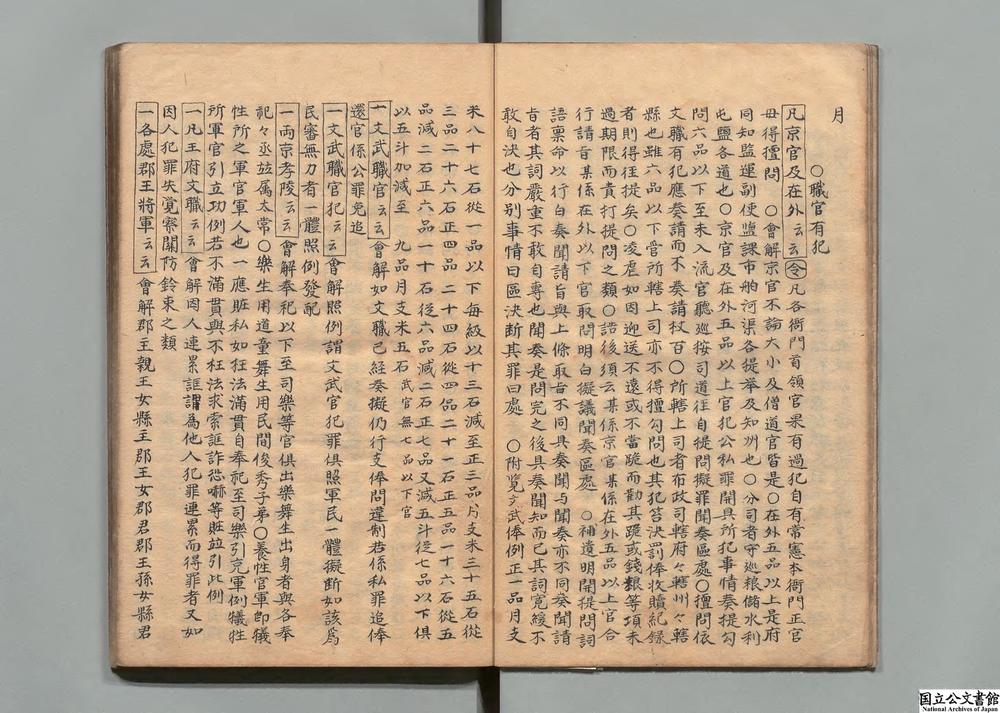 月
〇職官有犯
凡京官及在外云云 令 凡各衙門首領官果有過犯自有常憲本衙門正官
毋得擅問 〇會解京官不論大小及僧道官皆是〇在外五品以上是府
同知監運副使盬課市舶河渠各提挙及知州也〇分司者守廵粮儲水利
屯鹽各道也〇京官及在外五品以上官犯公私罪開具所犯事情奏提勾
問六品以下至未入流官聽廵按司道徃自提問擬罪聞奏區處〇擅問依
文職有犯應奏請而不奏請杖百〇所轄上司者布政司轄府々轄州々轄
縣也雖六品以下官所轄上司亦不得擅勾問也其犯笞决罰俸收贖紀録
者則得徃提矣〇凌虐如因迎送不遠或不當跪而勒其跪或錢粮等項未
過期限而責打提問之類〇語後須云某係京官某係在外五品以上官合
行請旨某係在外以下官取問明白擬議聞奏區處 〇補遺明開提問詞
語稟命以行白奏聞請旨與上條取旨不同具奏聞與聞奏亦不同奏聞請
旨者其詞嚴重不敢自專也聞奏是問完之後具奏聞知而已其詞寛緩不
敢自决也分别事情曰區决断其罪曰處 〇附覧文武俸例正一品月支
米八十七石從一品以下毎級以十三石減至正三品月支米三十五石從
三品二十六石正四品二十四石從四品二十一石正五品一十六石從五
品減二石正六品一十石從六品減二石正七品又減五斗從七品以下俱
以五斗加減至 九品月支米五石武官無七品以下官
一文武職官云云 會解如文職已經奏擬仍行支俸問違制若係私罪追俸
還官係公罪免追
一文武職官犯云云 會解照例謂文武官犯罪俱照軍民一體擬断如該爲
民審無力者一體照例發配
一両京孝陵云云 會解奉祀以下至司樂等官俱出樂舞生出身者與各奉
祀々丞竝属太常〇樂生用道童舞生用民間俊秀子弟〇養性官軍即犠
性所之軍官軍人也一應賍私如枉法滿貫自奉祀至司樂引充軍例犠牲
所軍官引立功例若不滿貫與不枉法求索誆詐恐嚇等賍竝引此例
一凡王府文職云云 會解因人連累誆謂為他人犯罪連累而得罪者又如
因人犯罪失覚察關防鈐束之類
一各處郡王將軍云云 會解郡主親王女縣主郡王女郡君郡王孫女縣君
国立公文書館
National Archives of Japan